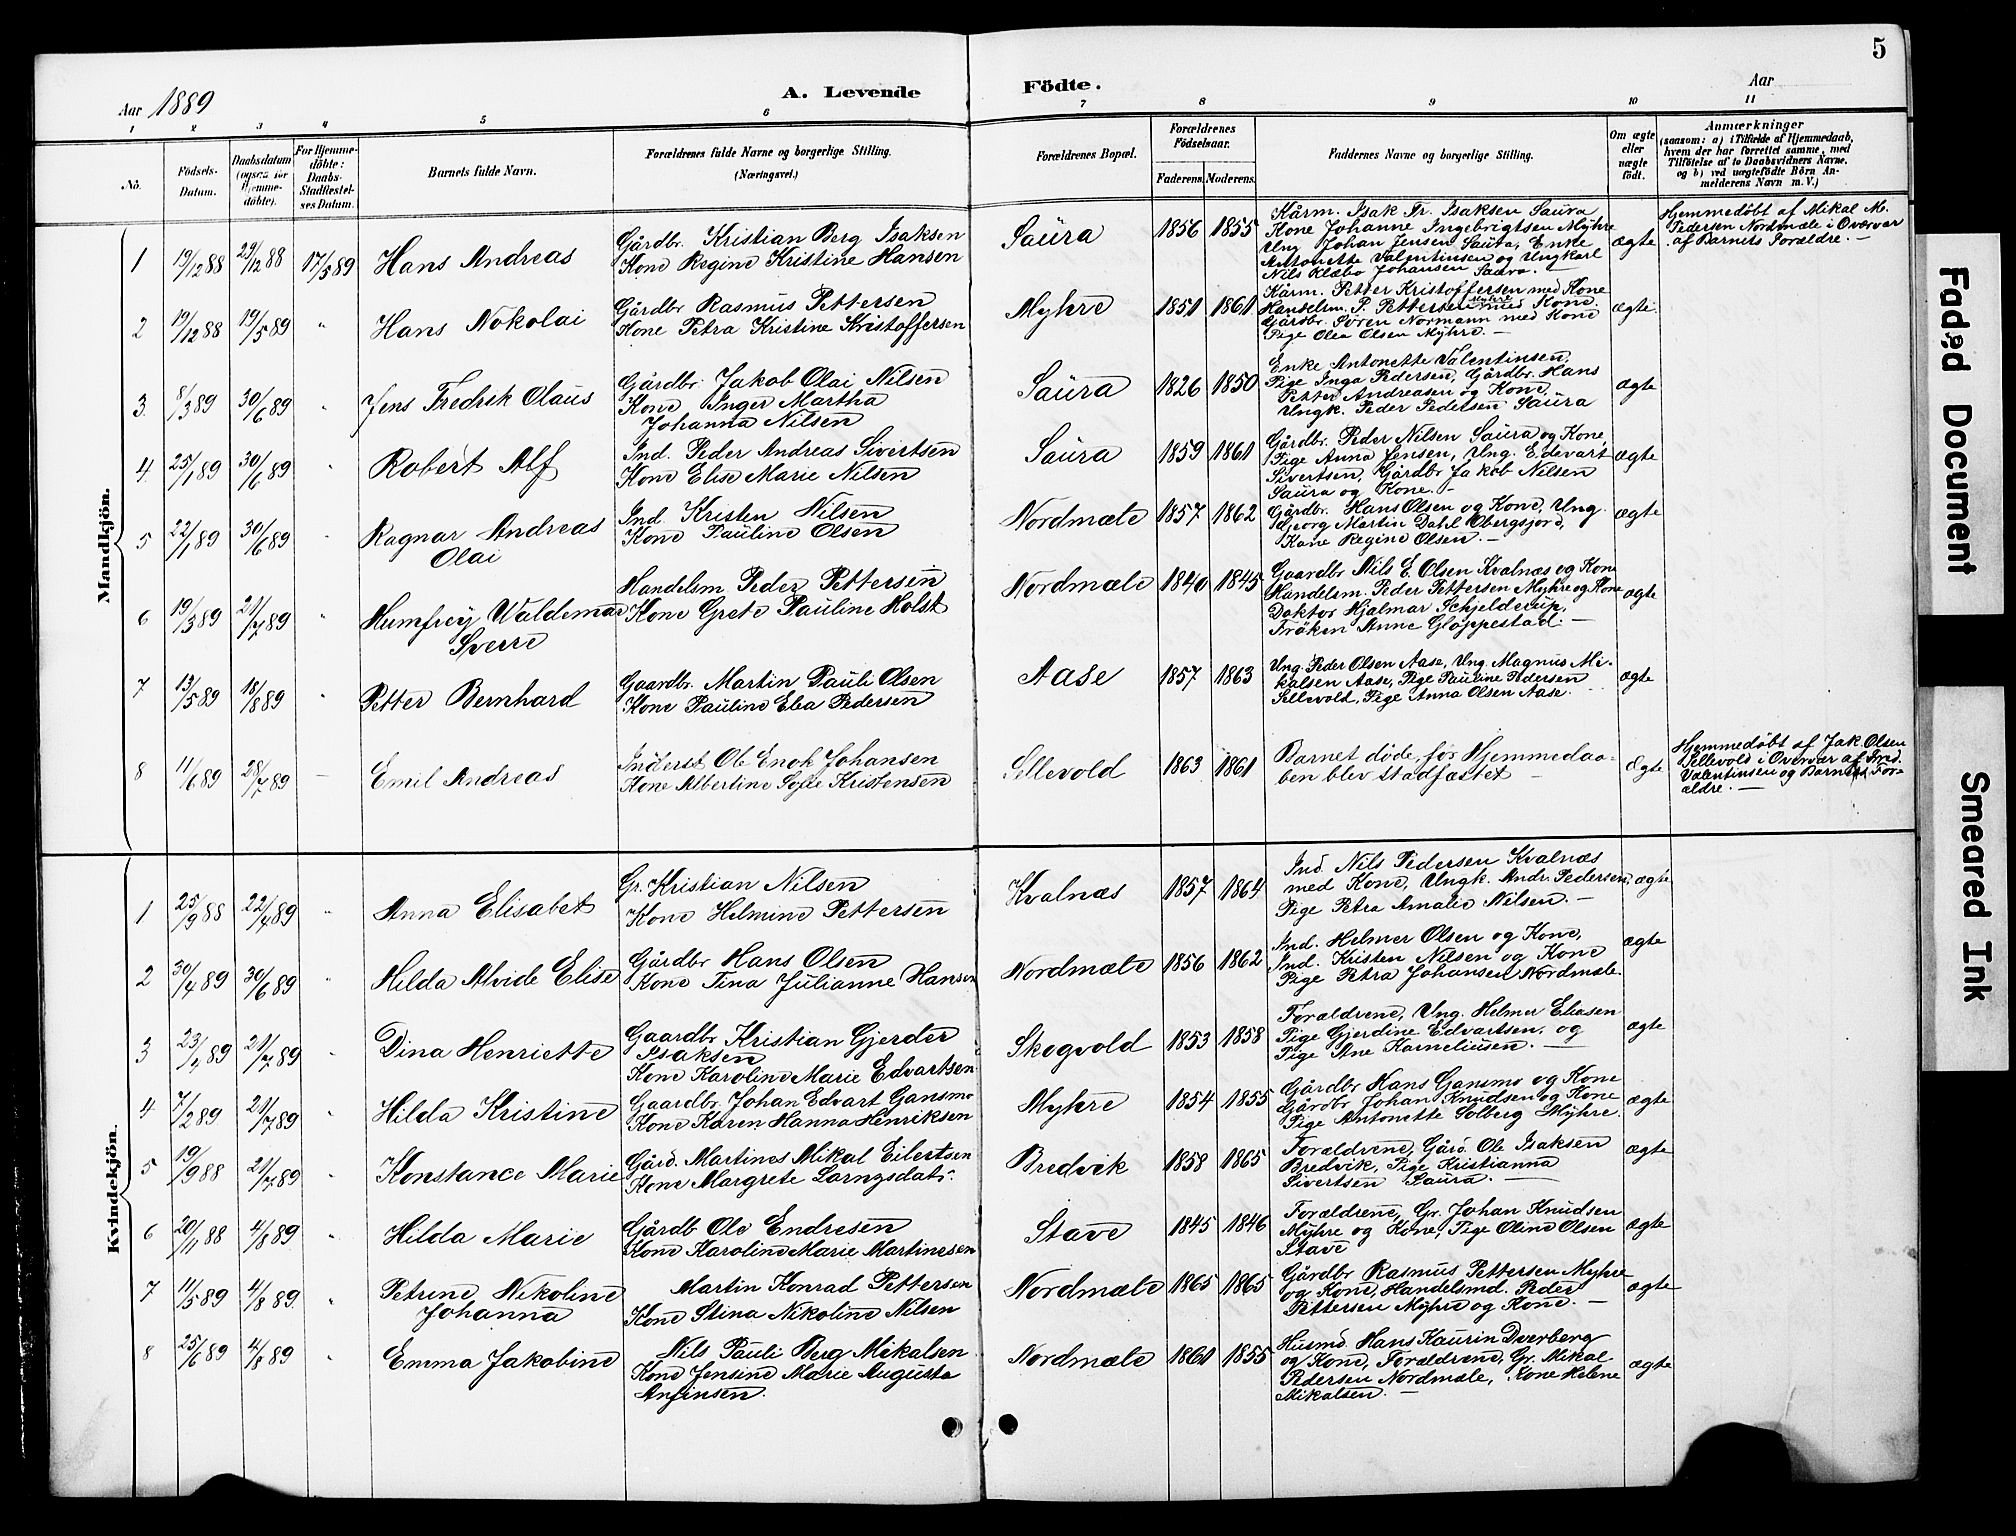 5
Aar 1889
A. Levende
Födte.
Aar
1 2 3 4 5 6 7 8 9 10 11
No.
Födsels-
Datum.
Daabsdatum
(ogsaa for
Hjemme-
döbte).
For Hjemme-
döbte:
Daabs-
Stadfæstel-
ses Datum.
Barnets fulde Navn.
Forældrenes fulde Navne og borgerlige Stilling.
(Næringsvei.)
Forældrenes Bopæl.
Forældrenes
Födselsaar.
Faderens. Moderens.
Faddernes Navne og borgerlige Stilling.
Om ægte
eller
uægte
födt.
Anmærkninger
(saasom: a) i Tilfælde af Hjemmedaab,
hvem der har forrettet samme, med
Tilföielse af to Daabsvidners Navne.
og b) ved uægtefödte Börn An-
melderens Navn m. V.)
Mandkjön.
1 19/12 88 29/12 88 17/5 89 Hans Andreas
Gårdbr. Kristian Berg Isaksen
Kone Regine Kristine Hansen
Saura 1856 1855
Kårm. Isak Fr. Isaksen Saura
Kone Johanne Ingebrigtsen Myhre
Ung Johan Jensen Saura, Enke
Antonette Valentinsen og Ungkarl
Nils Klæbo Johansen Saura. —
ægte
Hjemmedøbt af Mikal M.
Pedersen Nordmæle i Overvær
af Barnets Forældre. —
2 19/12 88 19/5 89 " Hans Nokolai
Gårdbr Rasmus Pettersen
Kone Petra Kristine Kristoffersen
Myhre 1851 1861
Kårm. Petter Kristoffersen med Kone
Handelsm. P. Pettersen Myhre med Kone.
Gårdbr. Søren Normann med Kone
Pige Olea Olsen Myhre. —
ægte.
3 8/3 89 30/6 89 " Jens Fredrik Olaus
Gårdbr. Jakob Olai Nilsen
Kone Inger Martha
Johanna Nilsen
Saura 1826 1850
Enke Antonette Valentinsen,
Pige Inga Pedersen, Gårdbr. Hans
Petter Andreasen og Kone,
Ungk. Peder Pedersen Saura
ægte
4 25/1 89 30/6 89 " Robert Alf
Ind. Peder Andreas Sivertsen
Kone Elise Marie Nilsen
Saura 1859 1861
Gårdbr. Peder Nilsen Saura og Kone,
Pige Anna Jensen, Ung. Edevart
Sivertsen, Gårdbr Jakob Nilsen
Saura og Kone. —
ægte
5 22/1 89 30/6 89 " Ragnar Andreas
Olai
Ind. Kristen Nilsen
Kone Pauline Olsen
Nordmæle 1857 1862
Gårdbr. Hans Olsen og Kone, Ung.
Georg Martin Dahl
Kone Regine Olsen. —
ægte
6 19/3 89 21/7 89 " Humfrey Waldemar
Sverre
Handelsm. Peder Pettersen
Kone Grete Pauline Holst
Nordmæle 1840 1845
Gaardbr Nils E. Olsen Kvalnæs og Kone
Handelsm. Peder Pettersen Myhre og Kone
Doktor Hjalmar Schjelderup,
Frøken Anne Gloppestad. —
ægte
7 13/5 89 18/8 89 " Petter Bernhard
Gaardbr. Martin Pauli Olsen
Kone Pauline Elea Pedersen
Aase 1857 1863
Ung. Peder Olsen Aase, Ung. Magnus Mi-
kalsen Aase, Pige Pauline Pedersen
Sellevold, Pige Anna Olsen Aase.
ægte
8 11/6 89 28/7 89 — Emil Andreas
Inderst Ole Enok Johansen
Kone Albertine Sofie Kristensen
Sellevold 1863 1861
Barnet døde, før Hjemmedaa-
ben blev stadfæstet —
Ægte
Hjemmedøbt af Jak. Olsen
Sellevold i Overvær af Fred.
Valentinsen og Barnets For-
ældre. —
Kvindekjön.
1 25/9 88 22/4 89 " Anna Elisabet
Gr. Kristian Nilsen
Kone Helmine Pettersen
Kvalnæs 1857 1864
Ind. Nils Pedersen Kvalnæs
med Kone, Ungk. Andr. Pedersen,
Pige Petra Amalie Nilsen. —
ægte
2 30/4 89 30/6 89 " Hilda Alvide Elise
Gårdbr Hans Olsen
Kone Tina Julianne Hansen
Nordmæle 1856 1862
Ind. Helmer Olsen og Kone,
Ind. Kristen Nilsen og Kone
Pige Petra Johansen Nordmæle.
ægte
3 23/1 89 21/7 89 " Dina Henriette
Gaardbr Kristian Gjerder
Isaksen
Kone Karoline Marie Edvartsen
Skogvold 1853 1858
Forældrene, Ung. Helmer Eliasen
Pige Gjerdine Edvartsen, og
Pige Ane Korneliusen. —
ægte
4 7/2 89 21/7 89 " Hilda Kristine
Gaardbr. Johan Edvart Gansmo
Kone Karen Hanna Henriksen
Myhre 1854 1855
Gårdbr Hans Gansmo og Kone
Gårdbr. Johan Knudsen og Kone
Pige Antonette Solberg Myhre.
ægte
5 19/9 88 21/7 89 " Konstance Marie
Gård. Martines Mikal Eilertsen
Kone Margrete
Bredvik 1858 1865
Forældrene, Gård. Ole Isaksen
Bredvik, Pige Kristianna
Sivertsen Saura. —
ægte
6 20/11 88 4/8 89 " Hilda Marie
Gårdb Ole Endresen
Kone Karoline Marie Martinesen
Stave 1845 1846
Forældrene, Gr. Johan Knudsen
Myhre og Kone, Pige Oline Olsen
Stave
ægte
7 11/5 89 4/8 89 " Petrine Nikoline
Johanna
Martin Konrad Pettersen
Kone Stina Nikoline Nilsen
Nordmæle 1865 1865
Gårdbr Rasmus Pettersen Myhre
og Kone, Handelsmd. Peder
Pettersen Myhre og Kone. —
ægte
8 25/6 89 4/8 89 " Emma Jakobine
Nils Pauli Berg Mikalsen
Kone Jensine Marie Augusta
Anfinsen.
Nordmæle 1861 1855
Husmd. Hans Kaurin Dverberg
og Kone, Forældrene, Gr. Mikal
Pedersen Nordmæle, Kone Helene
Mikalsen. —
ægte
Faded Document
Smeared Ink